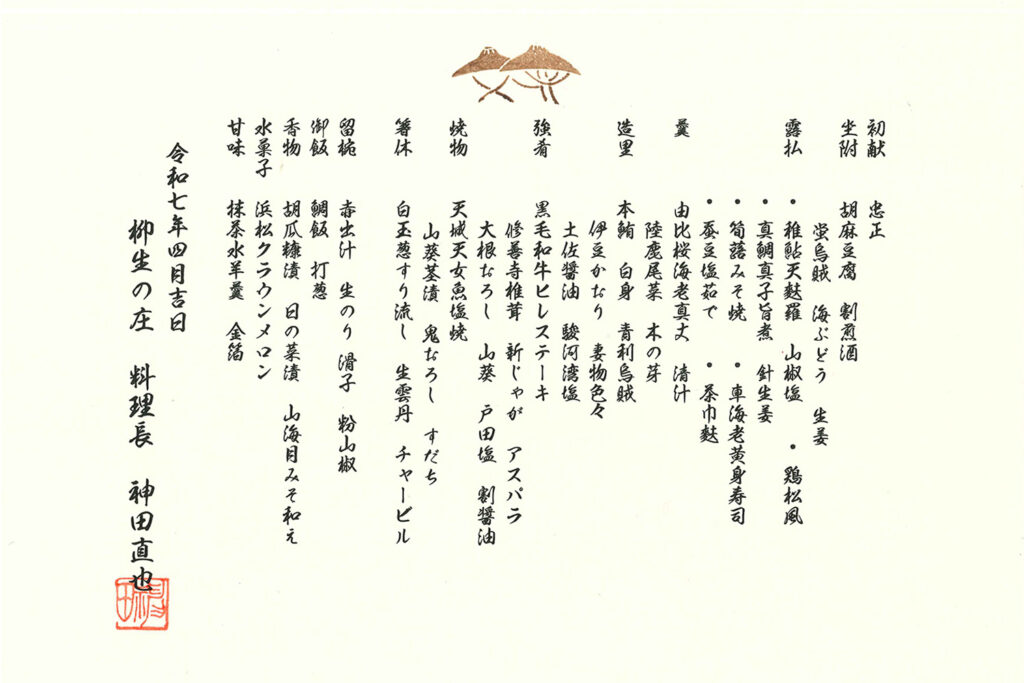 初献 忠正
坐附 胡麻豆腐 割煎酒
蛍烏賊 海ぶどう 生姜
露払 ・稚鮎天麩羅 山椒塩 ・鶏松風
・真鯛真子旨煮 針生姜
・筍蕗みそ焼 ・車海老黄身寿司
・蚕豆塩茹で ・茶巾麩
羹 由比桜海老真丈 清汁
陸鹿尾菜 木の芽
造里 本鮪 白身 青利烏賊
伊豆かおり 妻物色々
土佐醤油 駿河湾塩
強肴 黒毛和牛ヒレステーキ
修善寺椎茸 新じゃが アスパラ
大根おろし 山葵 戸田塩 割醤油
焼物 天城天女魚塩焼
山葵茎漬 鬼おろし すだち
箸休 白玉葱すり流し 生雲丹 チャービル
留椀 赤出汁 生のり 滑子 粉山椒
御飯 鯛飯 打葱
香物 胡瓜糠漬 日の菜漬 山海月みそ和え
水菓子 浜松クラウンメロン
甘味 抹茶水羊羹 金箔
令和七年四月吉日
柳生の庄 料理長 神田直也